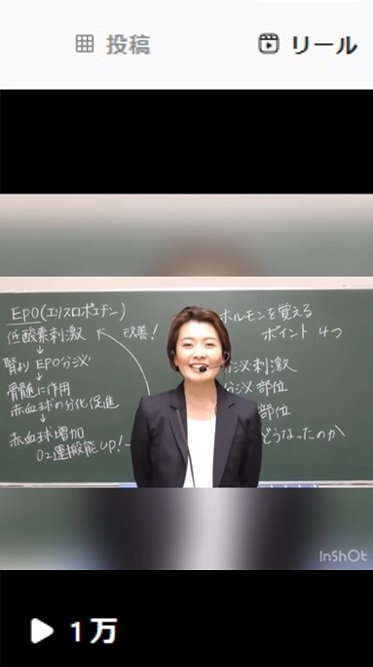 投稿
リール
EPO(エリスロポエチン)
低酸素刺激
↓
腎より EPO分泌
↓
骨髄に作用
赤血球の分化促進
↓
赤血球増加
O2運搬能up!
改善!
ホルモンを覚える
ポイント 4つ
分泌刺激
分泌部位
部位
どうなったのか
InShOt
1万